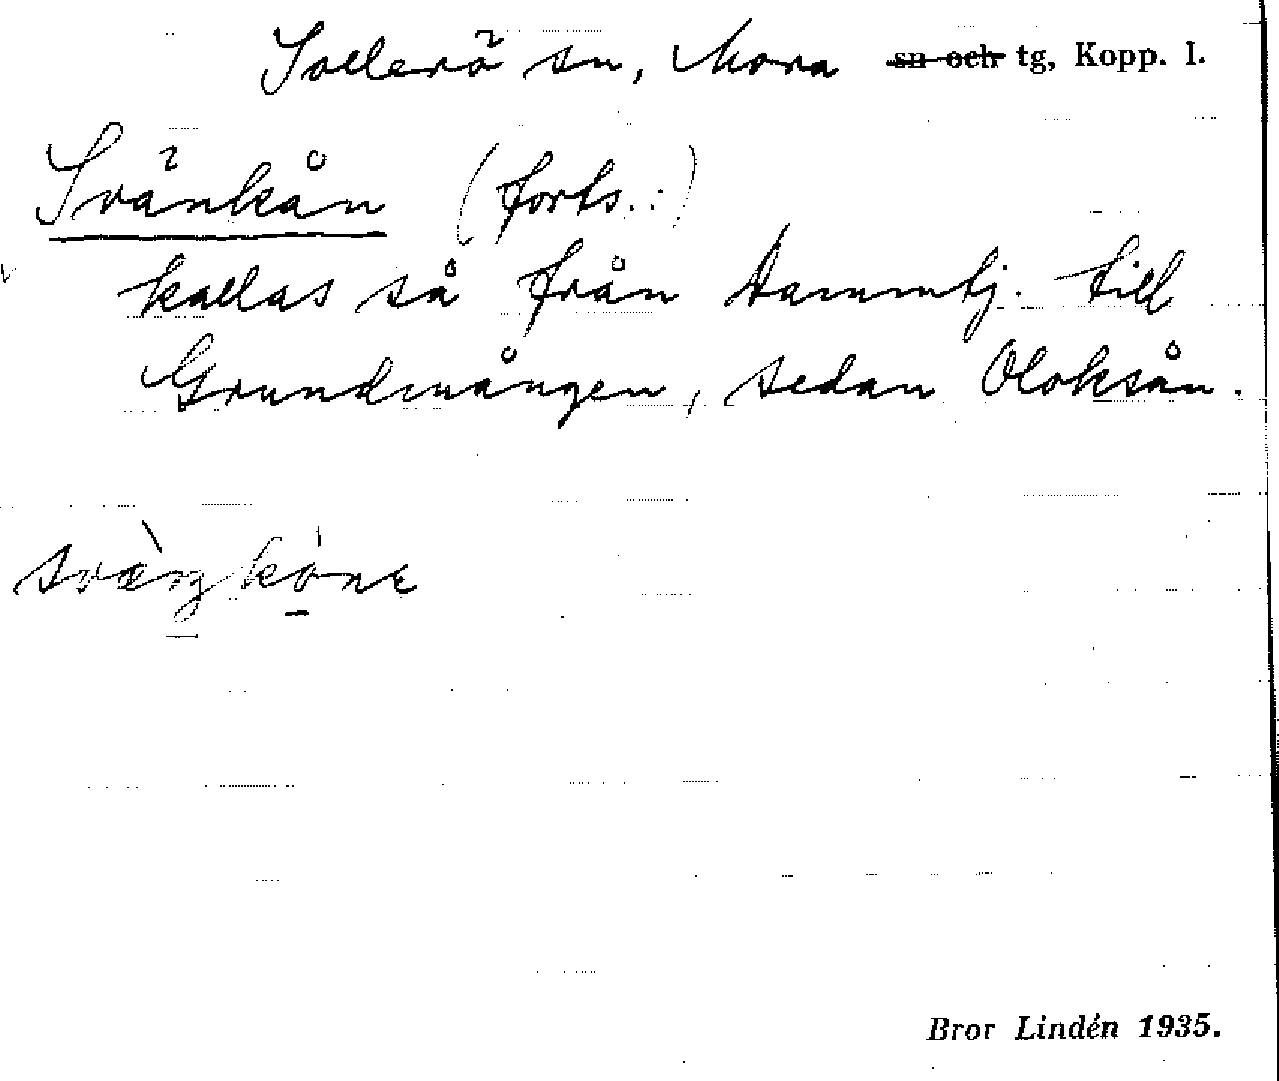 Sollerö sn, Mora sn och tg, Kopp. l.
Svänkån (forts.:)
kallas så från Dammtj. till
Grundmången, sedan Oloksån.
sväŋkåne
Bror Lindén 1935.